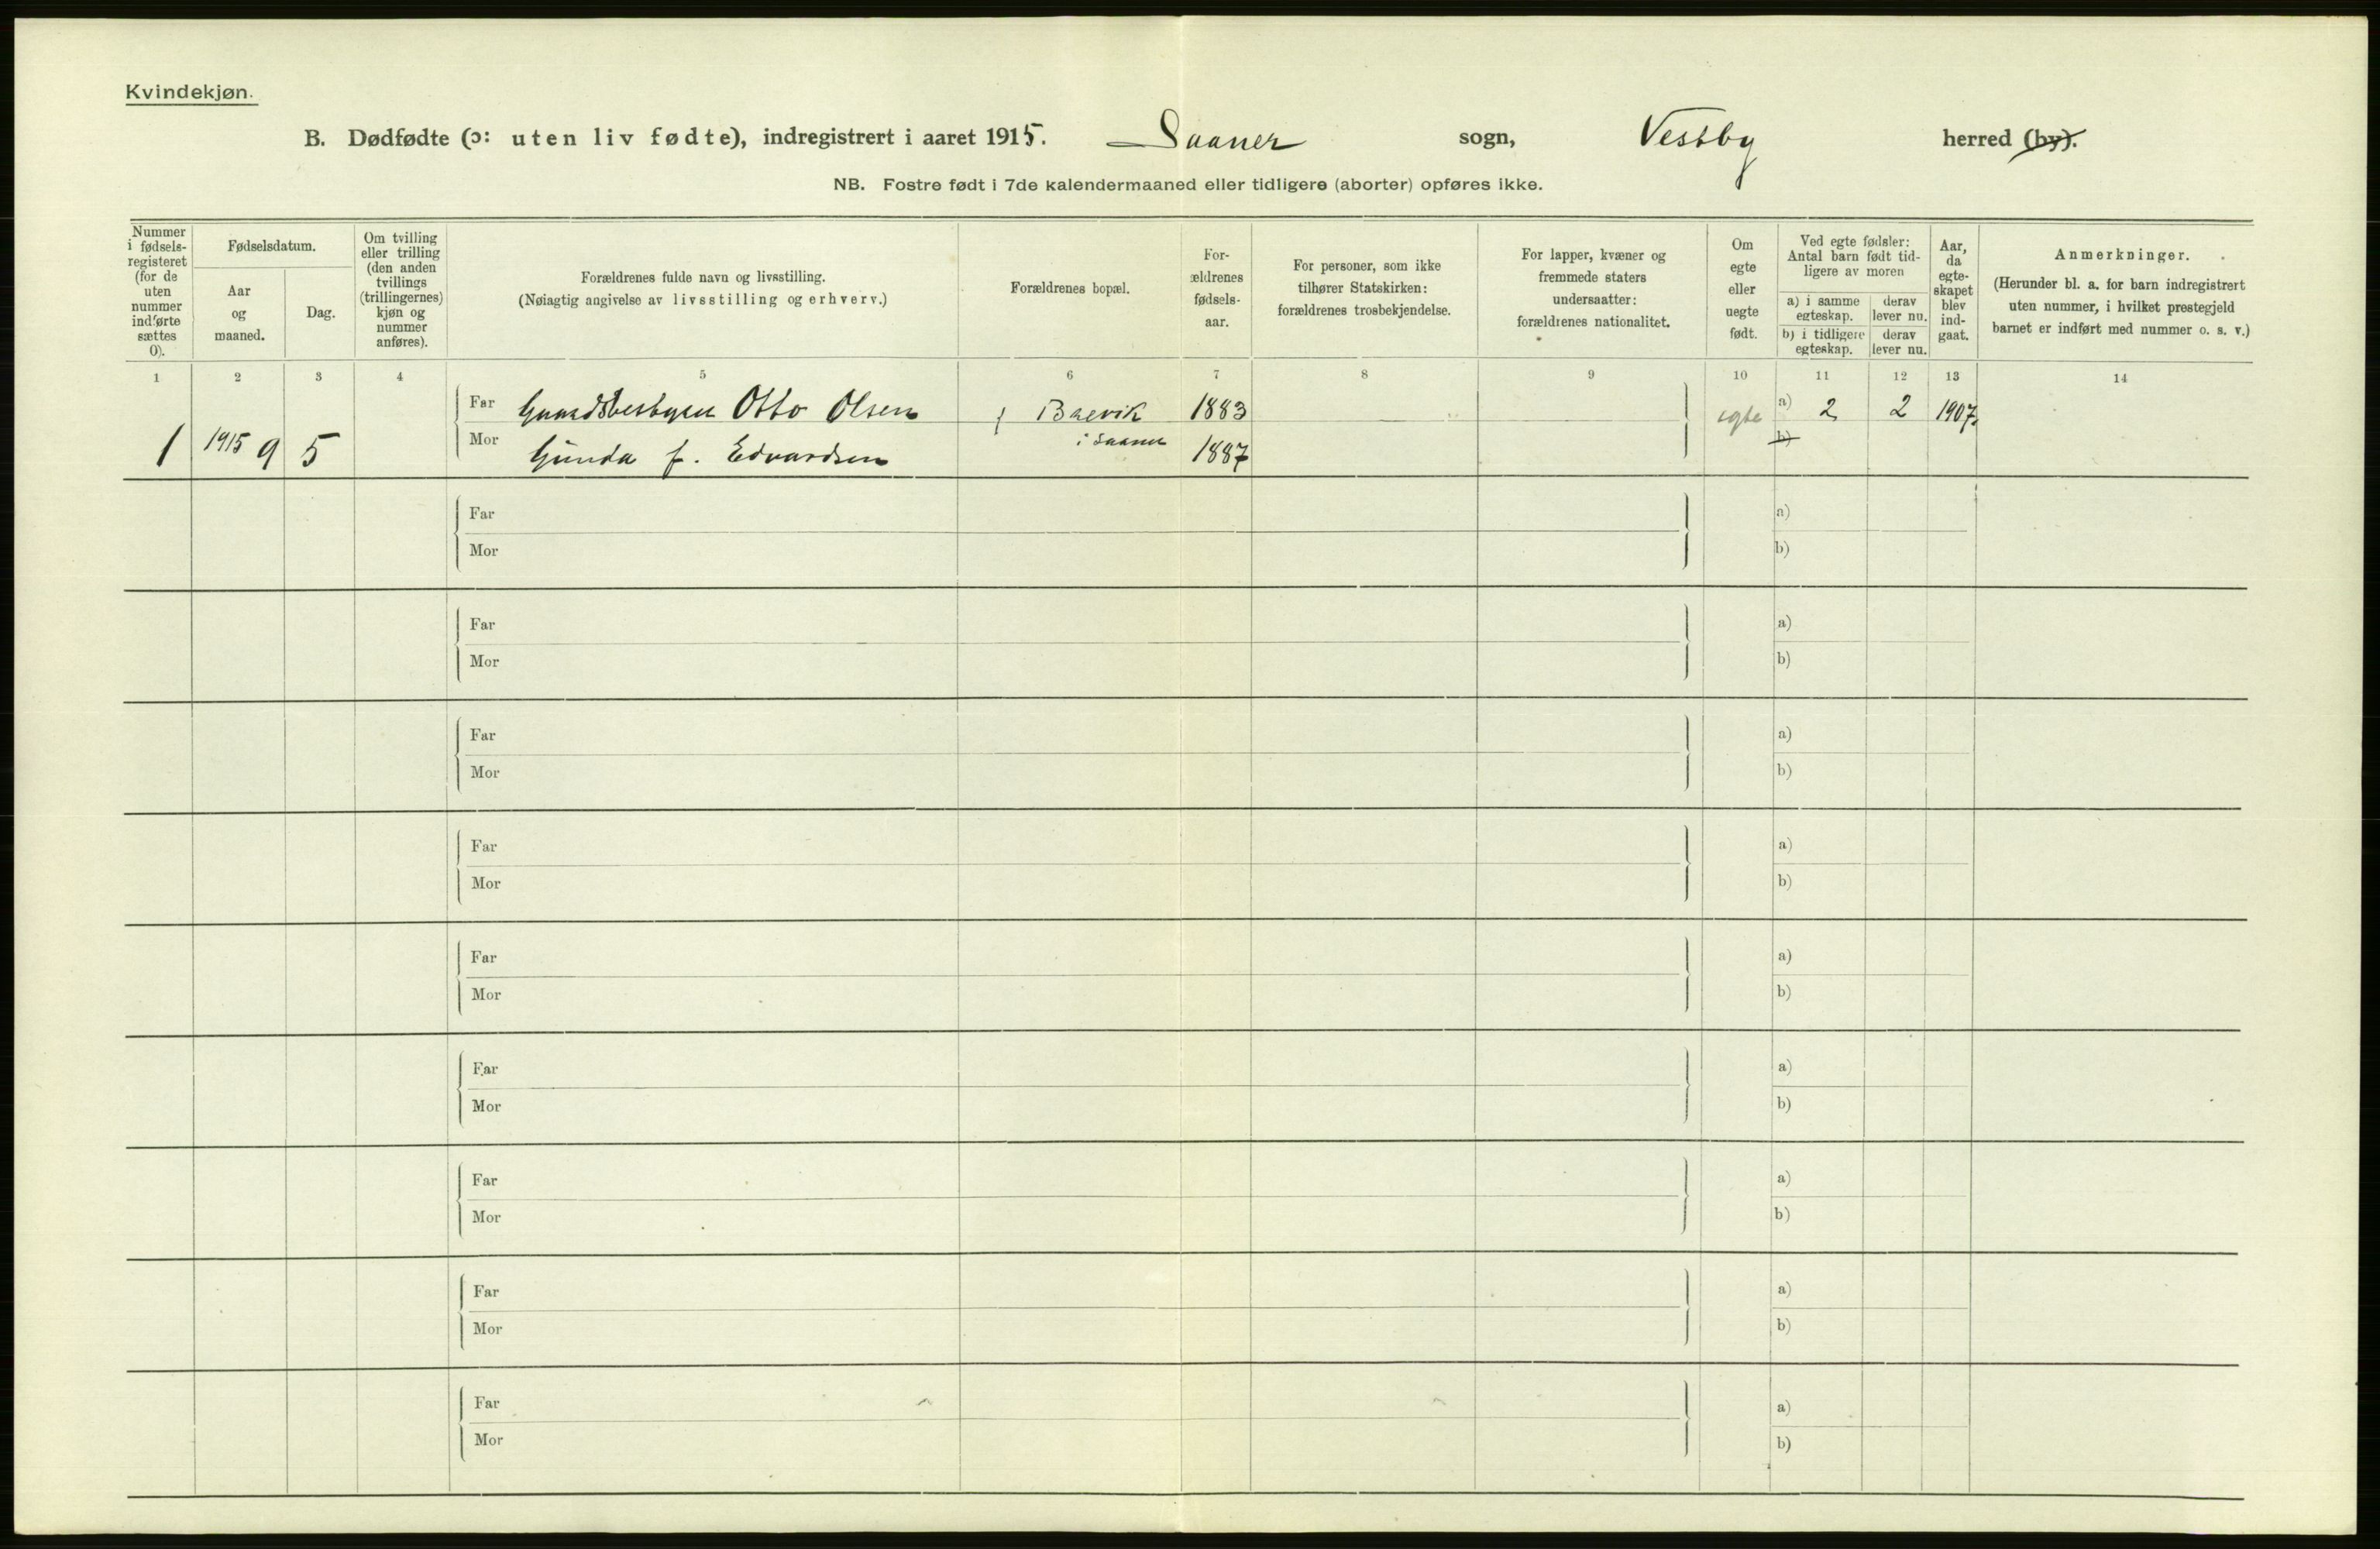 Kvindekjøn.
B. Dødfødte (ɔ: uten liv fødte), indregistrert i aaret 1915. Saaner sogn, Vestby herred (by).
NB. Fostre født i 7de kalendermaaned eller tidligere (aborter) opføres ikke.
Nummer i fødsels-registeret (for de uten nummer indførte sættes 0).
Fødselsdatum.
Aar og maaned.
Dag.
Om tvilling eller trilling (den anden tvillings (trillingernes) kjøn og nummer anføres).
Forældrenes fulde navn og livsstilling.
(Nøiagtig angivelse av livsstilling og erhverv.)
Forældrenes bopæl.
For-ældrenes fødsels-aar.
For personer, som ikke tilhører Statskirken: forældrenes trosbekjendelse.
For lapper, kvæner og fremmede staters undersaatter: forældrenes nationalitet.
Om egte eller uegte født.
Ved egte fødsler: Antal barn født tid-ligere av moren
a) i samme egteskap.
derav lever nu.
b) i tidligere egteskap.
derav lever nu.
Aar, da egte-skapet blev ind-gaat.
Anmerkninger.
(Herunder bl. a. for barn indregistrert uten nummer, i hvilket prestegjeld barnet er indført med nummer o. s. v.)
1 2 3 4 5 6 7 8 9 10 11 12 13 14
Far Gaardsbestyrer Otto Olsen Brevik 1883 egte a) 2 2 1907
1 1915 9 5 Mor Gunda f. Edvardsen i Saaner 1887 b)
Far a)
Mor b)
Far a)
Mor b)
Far a)
Mor b)
Far a)
Mor b)
Far a)
Mor b)
Far a)
Mor b)
Far a)
Mor b)
Far a)
Mor b)
Far a)
Mor b)